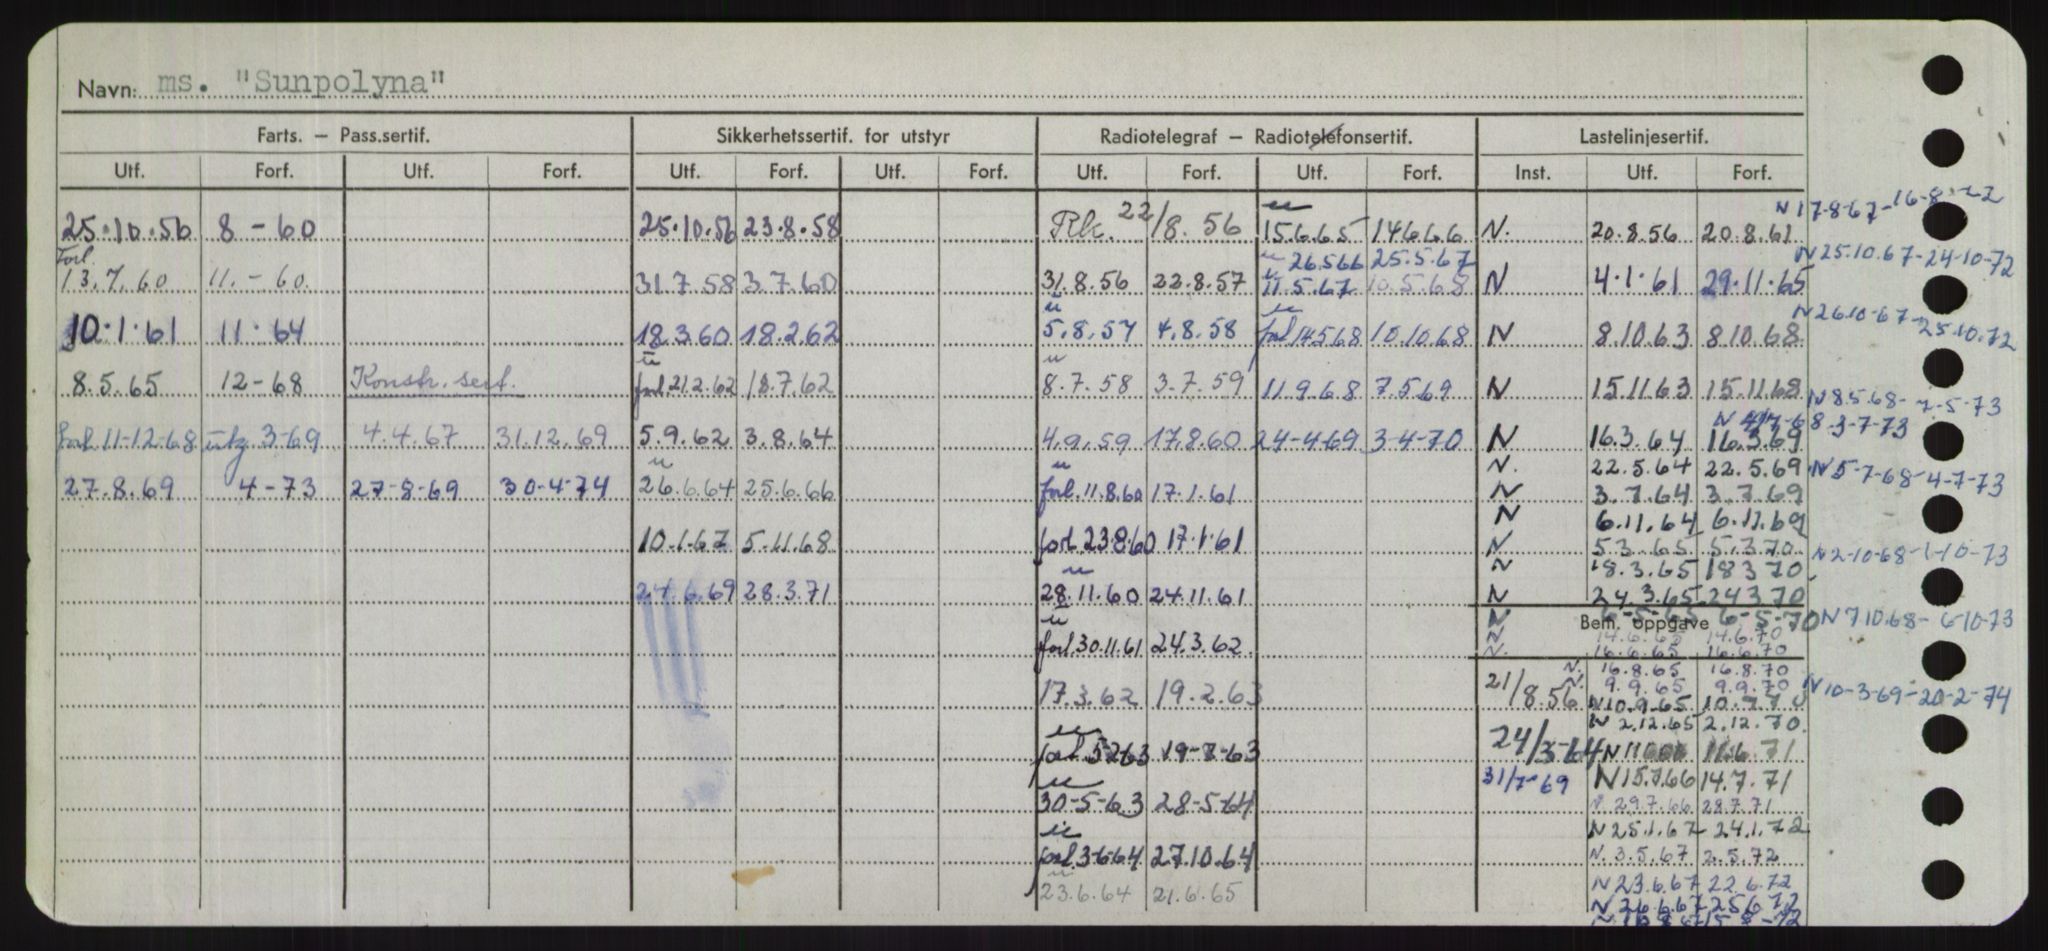 Navn: ms. "Sunpolyna"
Farts. — Pass.sertif. Sikkerhetssertif. for utstyr Radiotelegraf — Radiotelefonsertif. Lastelinjesertif.
Utf. Forf. Utf. Forf. Utf. Forf. Utf. Forf. Utf. Forf. Utf. Forf. Inst. Utf. Forf.
N 17-8-67 - 16-8-72
25.10.56 8 - 60 25.10.56 23.8.58 Rk. 22/8.56 u 15.6.65 14.6.66 N. 20.8.56 20.8.61
u 26.5.66 25.5.67 N 25.10.67 - 24-10-72
Forl. 13.7.60 11. - 60 31.7.58 3.7.60 31.8.56 22.8.57 u 11.5.67 10.5.68 N 4.1.61 29.11.65
10.1.61 11.64 18.3.60 18.2.62 u 5.8.57 4.8.58 u forl 14.5.68 10.10.68 N 8.10.63 8.10.68 N 26.10-67 - 25.10.72
8.5.65 12-68 Konstr. sert. u forl. 21.2.62 18.7.62 u 8.7.58 3.7.59 11.9.68 7.5.69 N 15.11.63 15.11.68 N 8.5.68 - 7-5-73
N 4/7-68 - 3-7-73
forl 11-12-68 utg. 3-69 4.4.67 31.12.69 5.9.62 3.8.64 4.9.59 17.8.60 24-4-69 3-4-70 N 16.3.64 16.3.69
N. 22.5.64 22.5.69 N 5-7-68 - 4-7-73
27.8.69 4-73 27-8-69 30-4-74 u 26.6.64 25.6.66 u forl. 11.8.60 17.1.61 N 3.7.64 3.7.69
N 6.11.64 6.11.69
10.1.67 5.11.68 forl. 23.8.60 17.1.61 N 5.3.65 5.3.70 N 2-10-68 - 1-10-73
N 18.3.65 18.3.70
24.6.69 28.3.71 u 28.11.60 24.11.61 N 24.3.65 24.3.70
Bem. oppgave
N 6-5-65 6-5-70 N 7.10.68 - 6-10-73
N 14.6.65 14.6.70
u forl 30.11.61 24.3.62 N. 16.6.65 16.6.70
N. 16.8.65 16.8.70
17.3.62 19.2.63 21/8.56 N. 9.9.65 9.9.70 N 10-3-69 - 20-2-74
N 10.9.65 10.9.70
N 2.12.65 2.12.70
u forl. 5-2-63 19-8-63 24/3-64 N 11.6.71
u 30-5-63 28-5-64 31/7-69 N 15.7.66 14.7.71
N. 29.7.66 28.7.71
N 25.1.67 24.1.72
u forl. 3-6-64 27.10.64 N. 3.5.67 2.5.72
u 23.6.64 21.6.65 N 23.6.67 22.6.72
N 26.6.67 25.6.72